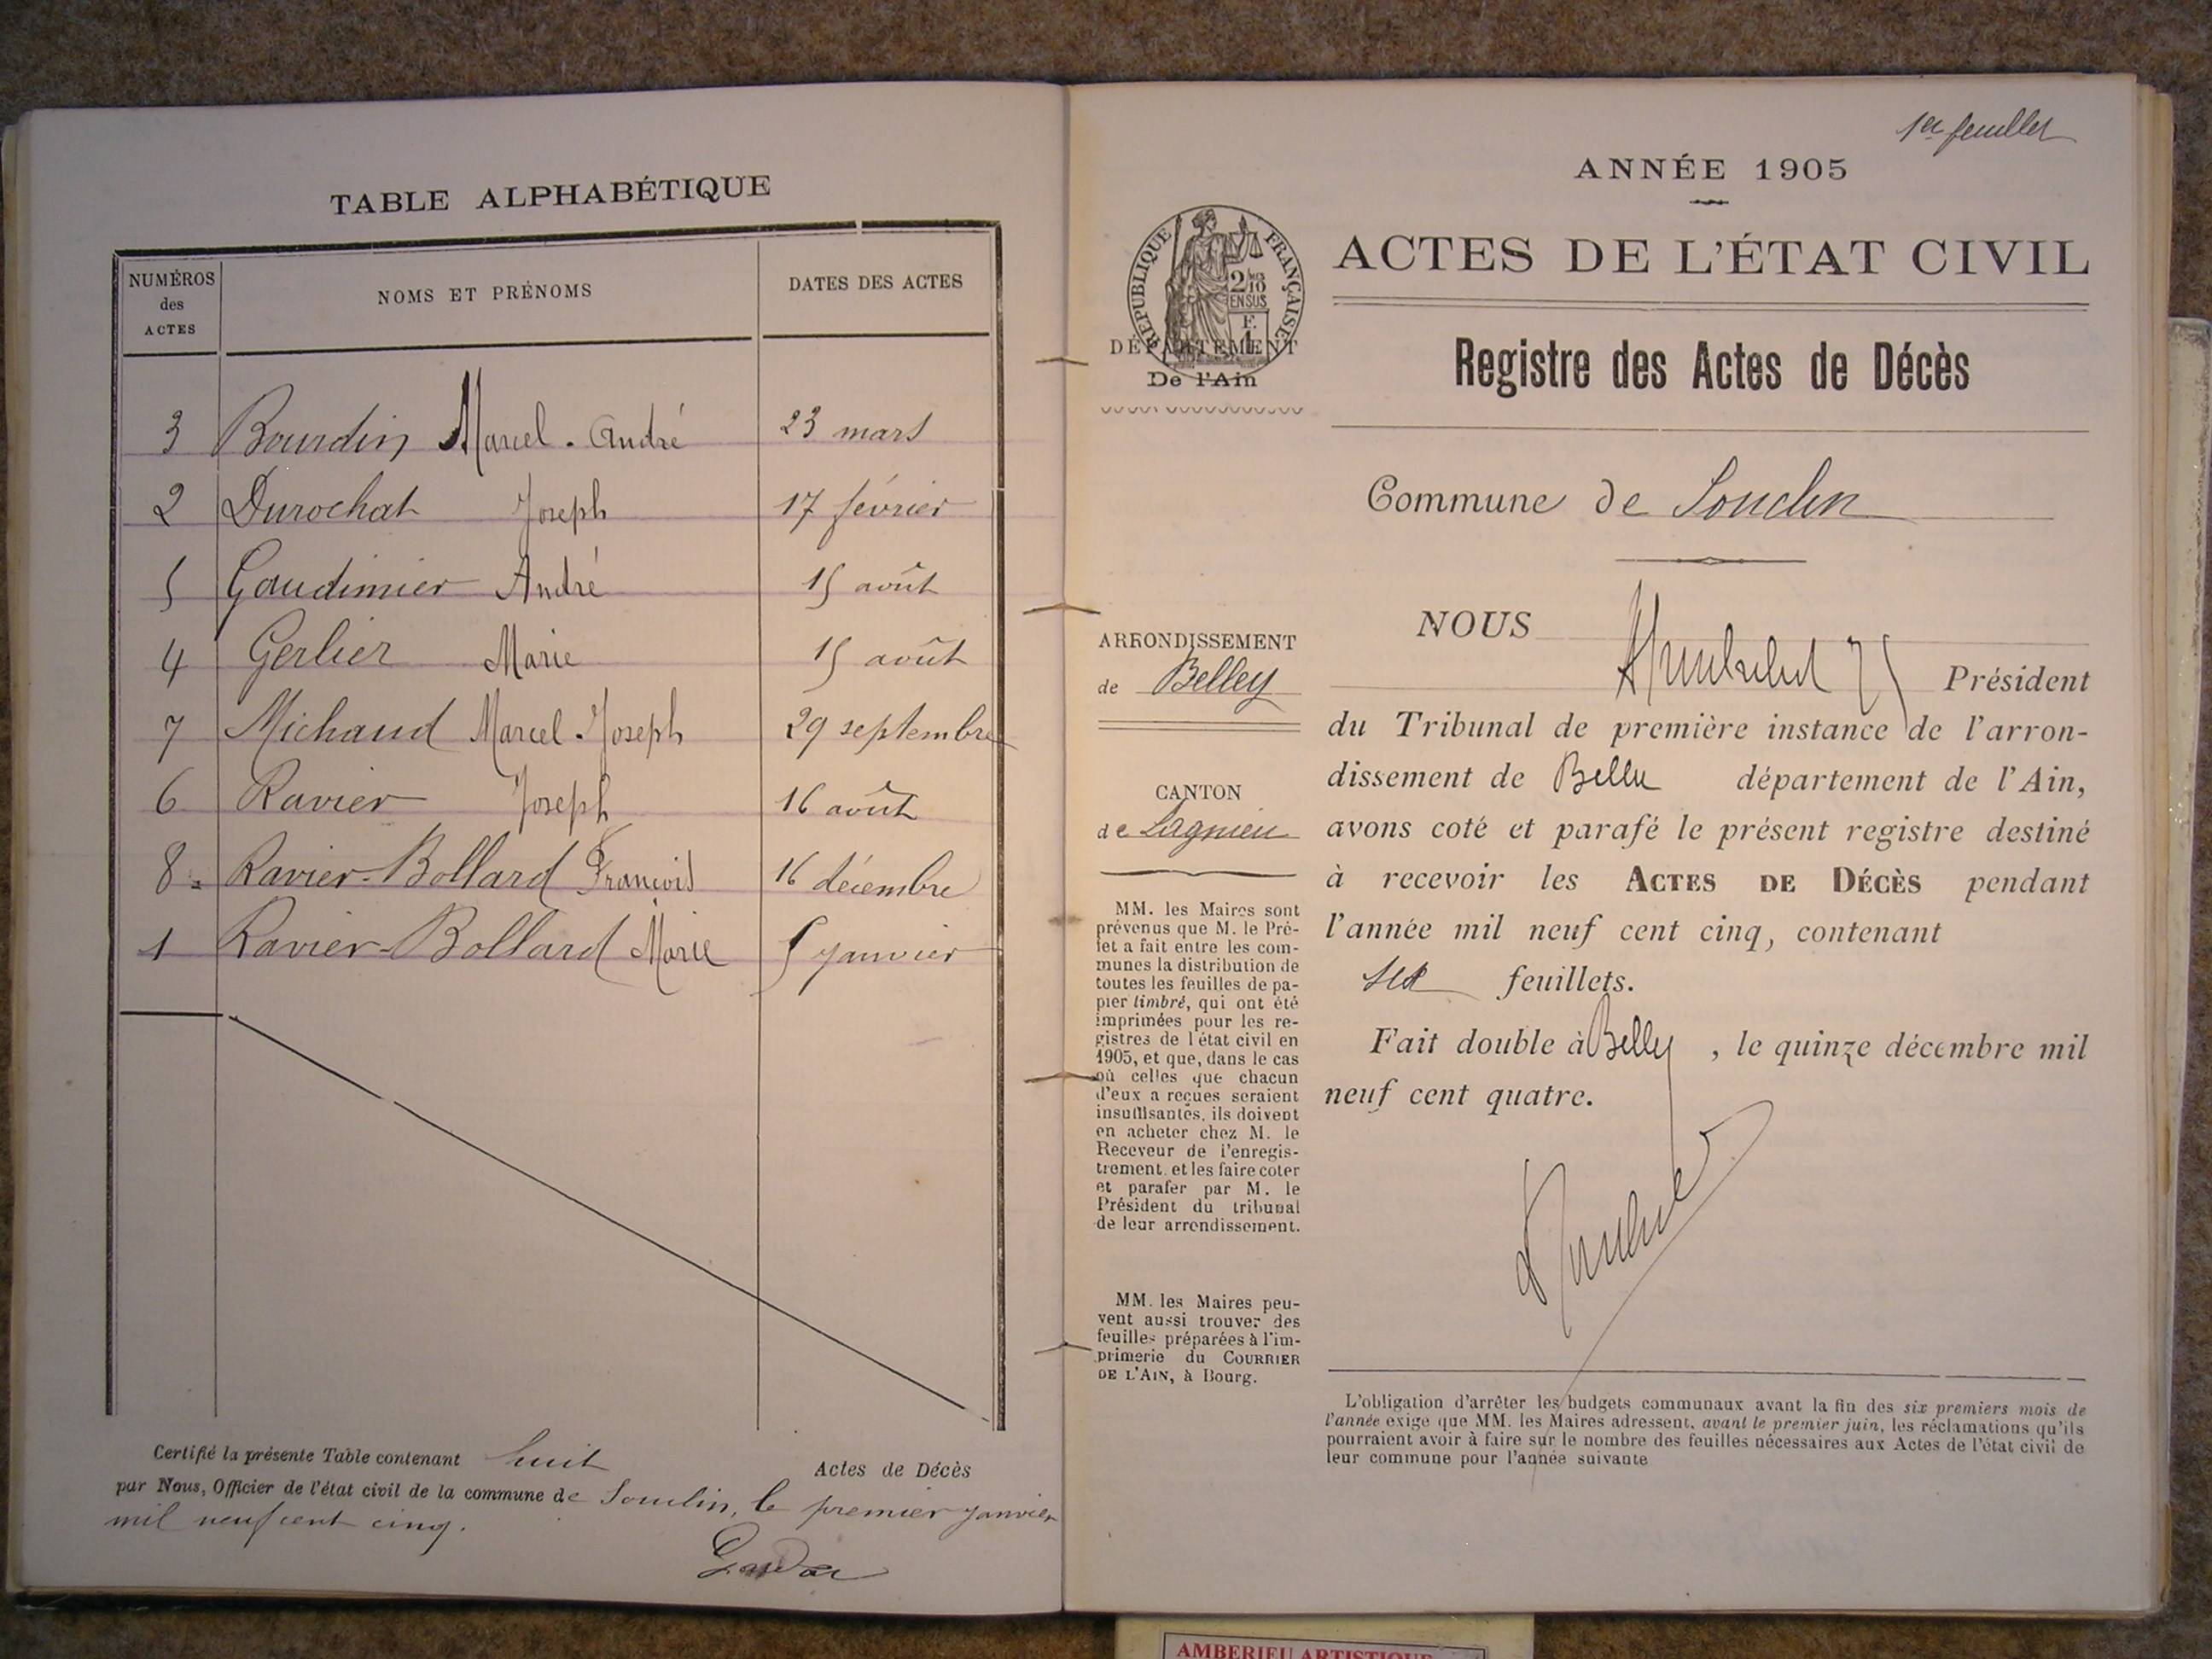 TABLE ALPHABÉTIQUE
NUMÉROS des ACTES
NOMS ET PRÉNOMS
DATES DES ACTES
3 Bourdin Marcel-André 23 mars
2 Durochat Joseph 17 février
5 Gaudimier André 15 août
4 Gerlier Marie 15 août
7 Michaud Marcel-Joseph 29 septembre
6 Ravier Joseph 16 août
8 Ravier-Bollard François 16 décembre
1 Ravier-Bollard Marie 5 janvier
Certifié la présente Table contenant huit Actes de Décès
par Nous, Officier de l'état civil de la commune de Souclin, le premier janvier
mil neuf cent cinq.
1er feuillet
ANNÉE 1905
ACTES DE L'ÉTAT CIVIL
Registre des Actes de Décès
Commune de Souclin
RÉPUBLIQUE FRANÇAISE
2/10
EN SUS
F.
DÉPARTEMENT
De l'Ain
ARRONDISSEMENT
de Belley
CANTON
de Lagnieu
MM. les Maires sont
prévenus que M. le Pré-
fet a fait entre les com-
munes la distribution de
toutes les feuilles de pa-
pier timbré, qui ont été
imprimées pour les re-
gistres de l'état civil en
1905, et que, dans le cas
où celles que chacun
d'eux a reçues seraient
insuffisantes, ils doivent
en acheter chez M. le
Receveur de l'enregis-
trement, et les faire coter
et parafer par M. le
Président du tribunal
de leur arrondissement.
MM. les Maires peu-
vent aussi trouver des
feuilles préparées à l'im-
primerie du COURRIER
DE L'AIN, à Bourg.
NOUS
Président
du Tribunal de première instance de l'arron-
dissement de Belley département de l'Ain,
avons coté et parafé le présent registre destiné
à recevoir les ACTES DE DÉCÈS pendant
l'année mil neuf cent cinq, contenant
six feuillets.
Fait double à Belley, le quinze décembre mil
neuf cent quatre.
L'obligation d'arrêter les budgets communaux avant la fin des six premiers mois de
l'année exige que MM. les Maires adressent, avant le premier juin, les réclamations qu'ils
pourraient avoir à faire sur le nombre des feuilles nécessaires aux Actes de l'état civil de
leur commune pour l'année suivante
AMBERIEU ARTISTIQUE